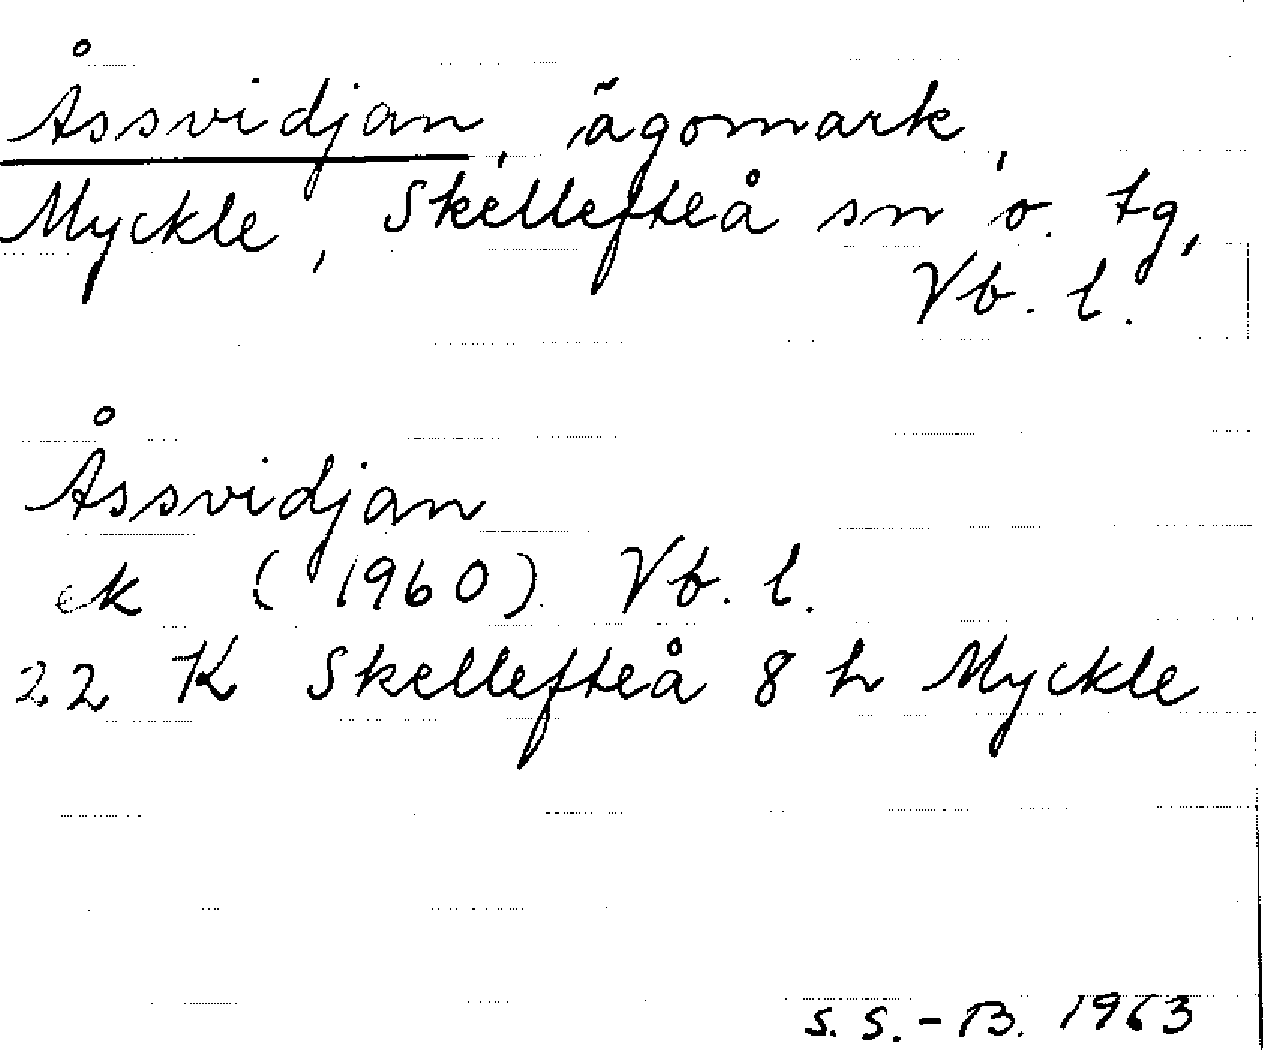 Åssvidjan, ägomark,
Myckle, Skellefteå sn o. tg,
Vb. l.
Åssvidjan
ek (1960) Vb. l.
22 K Skellefteå 8 h Myckle
S. S.-B. 1963